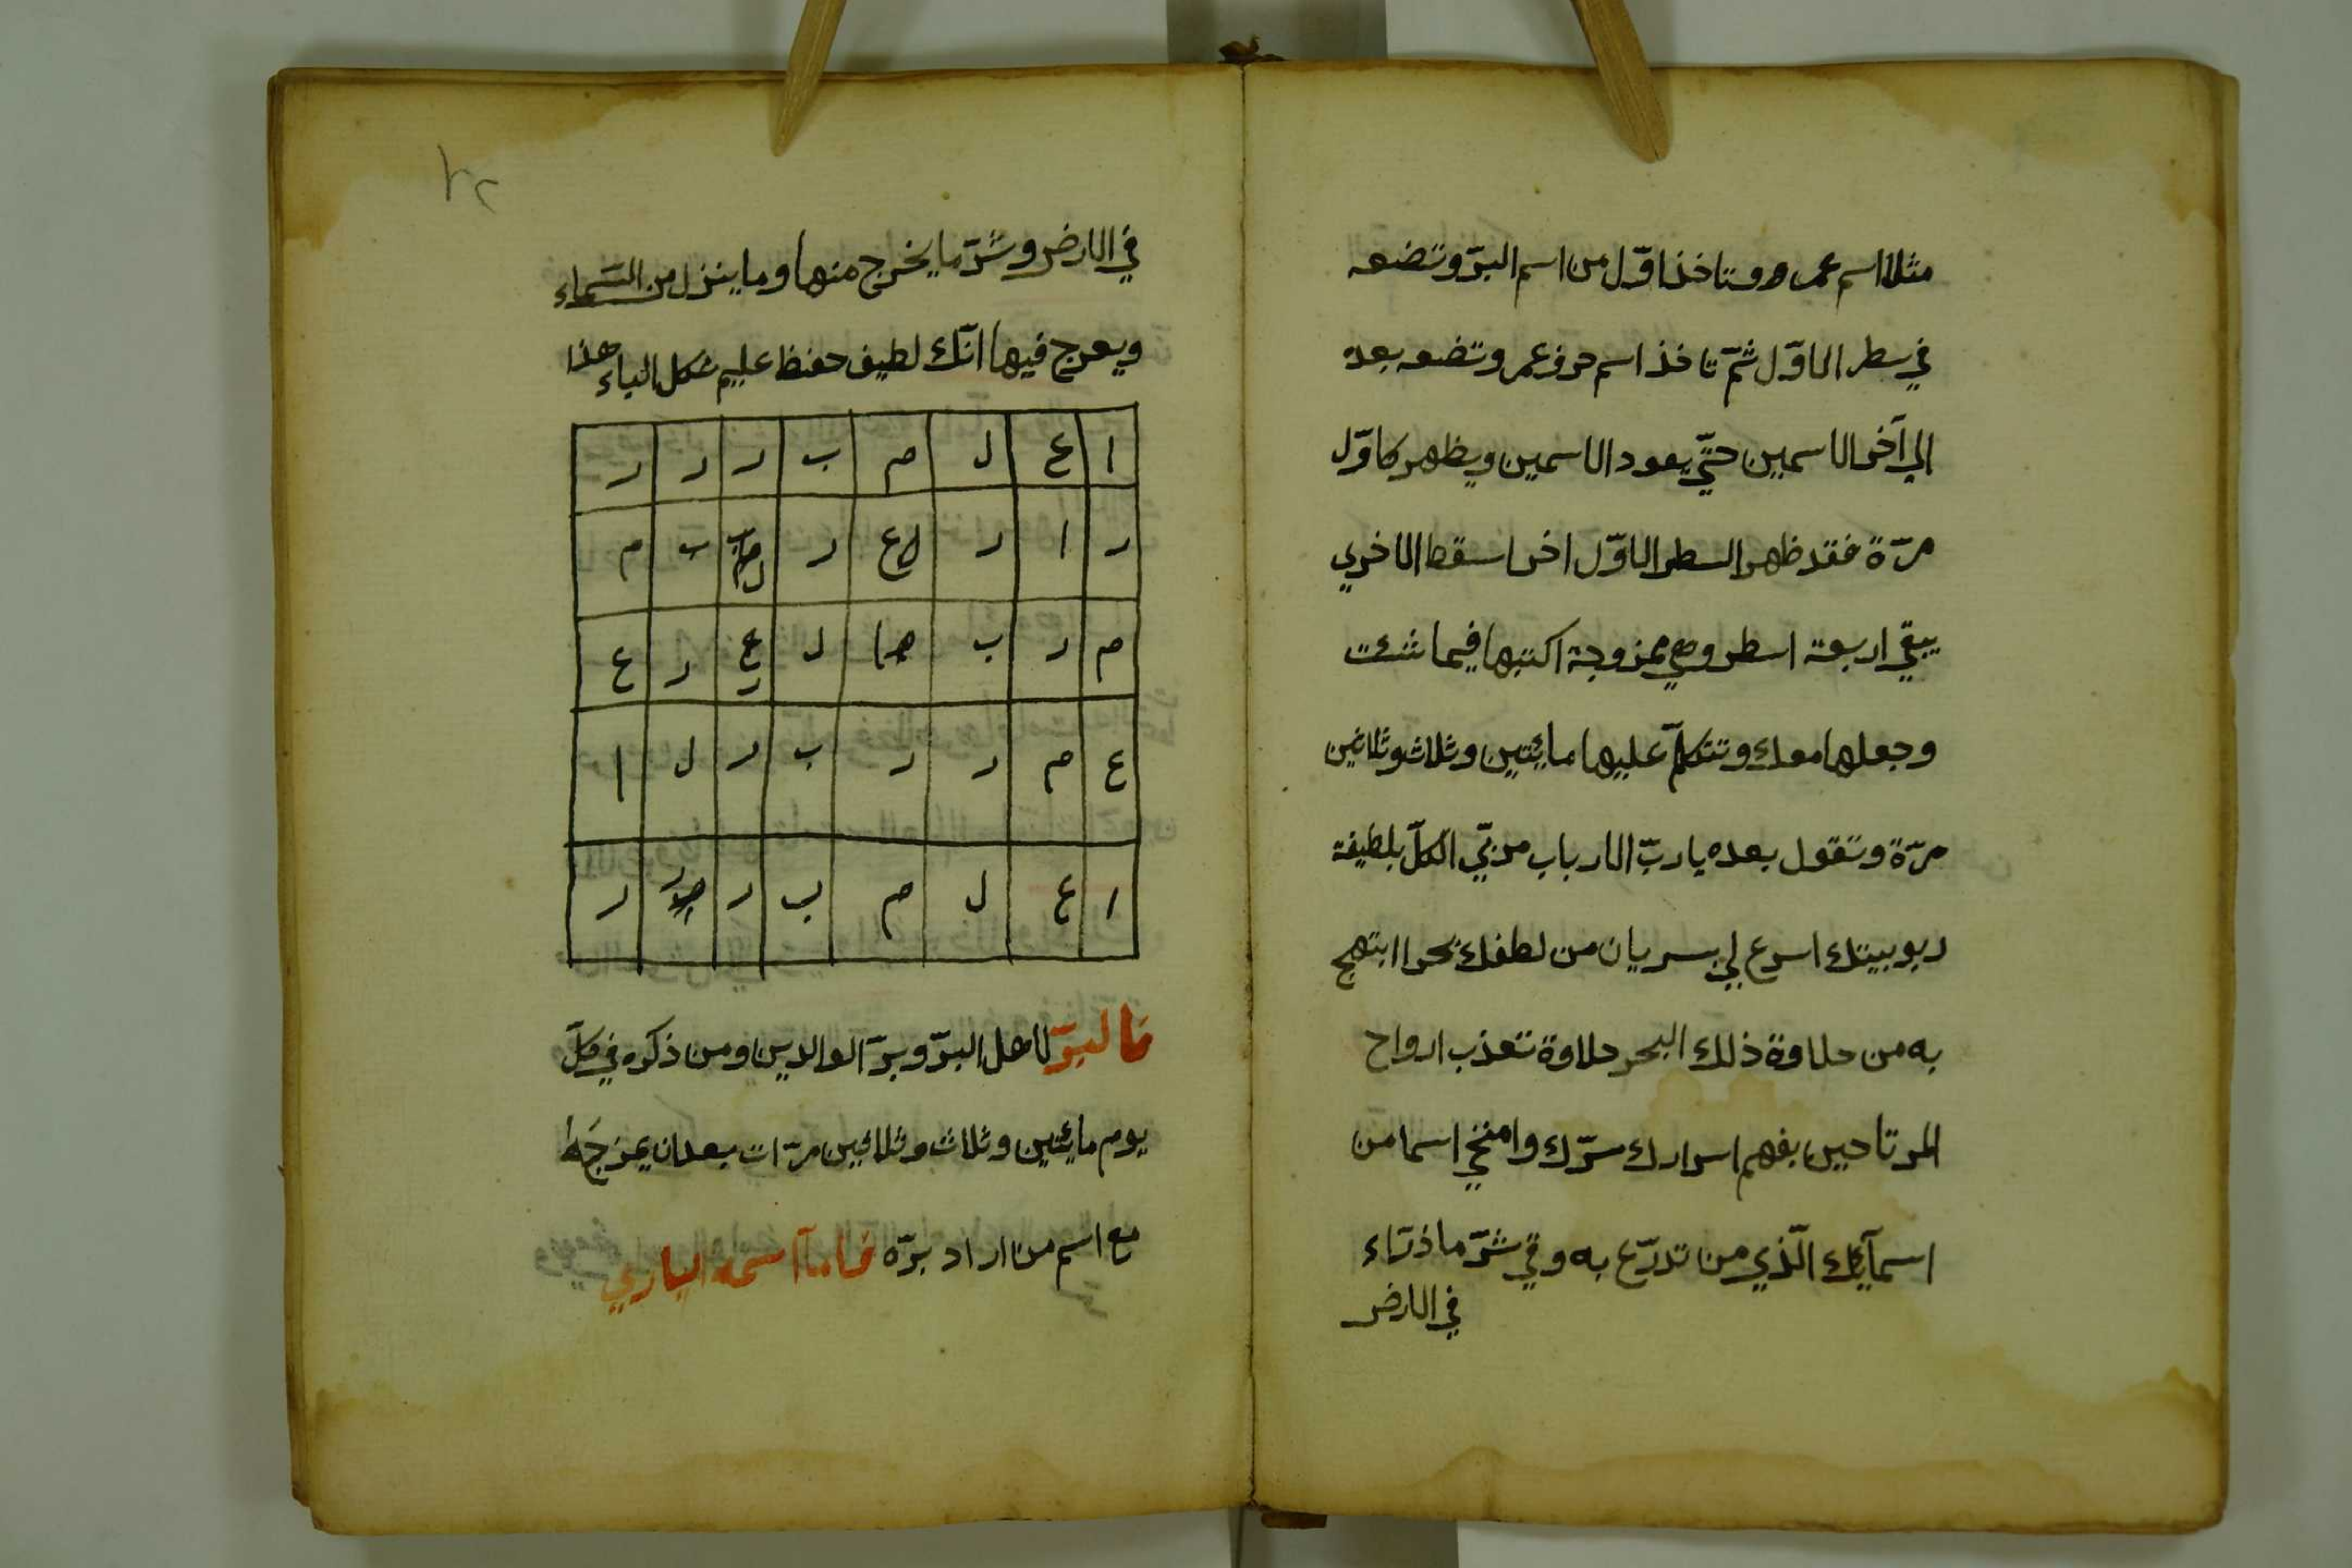 مثلا اسم عمر وتاخذ اوّل من اسم البرّ وتضعه
في سطر الاوّل ثمّ تاخذ اسم حرف عمر وتضعه بعده
الي آخر الاسمين حتّي يعود الاسمين ويظهر كاوّل
مرّة فقد ظهر السطر الاوّل اخرا سقط الاخري
يبقي اربعة اسطر وهي ممزوجة اكتبها فيما شئت
وجعلها معك وتتكلّم عليها مائيتين وثلاث وثلاثين
مرّة وتقول بعده يا ربّ الارباب مربّي الكلّ بلطيفة
ربوبيتك اسرع لي بسريان من لطفك بحرا ابتهج
به من حلاوة ذلك البحر حلاوة تعذب ارواح
المرتاحين بفهم اسرارك سرّك وامنخي اسما من
اسمآئك الّذي من تدرّع به وقي شرّ ما ذرّاء
في الارض
٢٢
في الارض وشرّ ما يخرج منها وما ينزل من السّماء
ويعرج فيها انّك لطيف حفيظ عليم شكل الباء هذا
ا ع ل م ب ر ر ر
ر ا ر ع ر ب م
م ر ب ل ع ر ع
ع م ر ر ب ر ل ا
ا ع ل م ب ر ر
فالبرّ لاهل البرّ وبرّ الوالدين ومن ذكره في كلّ
يوم مائيتين وثلاث وثلاثين مرّات بعد ان يمزجه
مع اسم من اراد برّه فامآ اسمه الباري